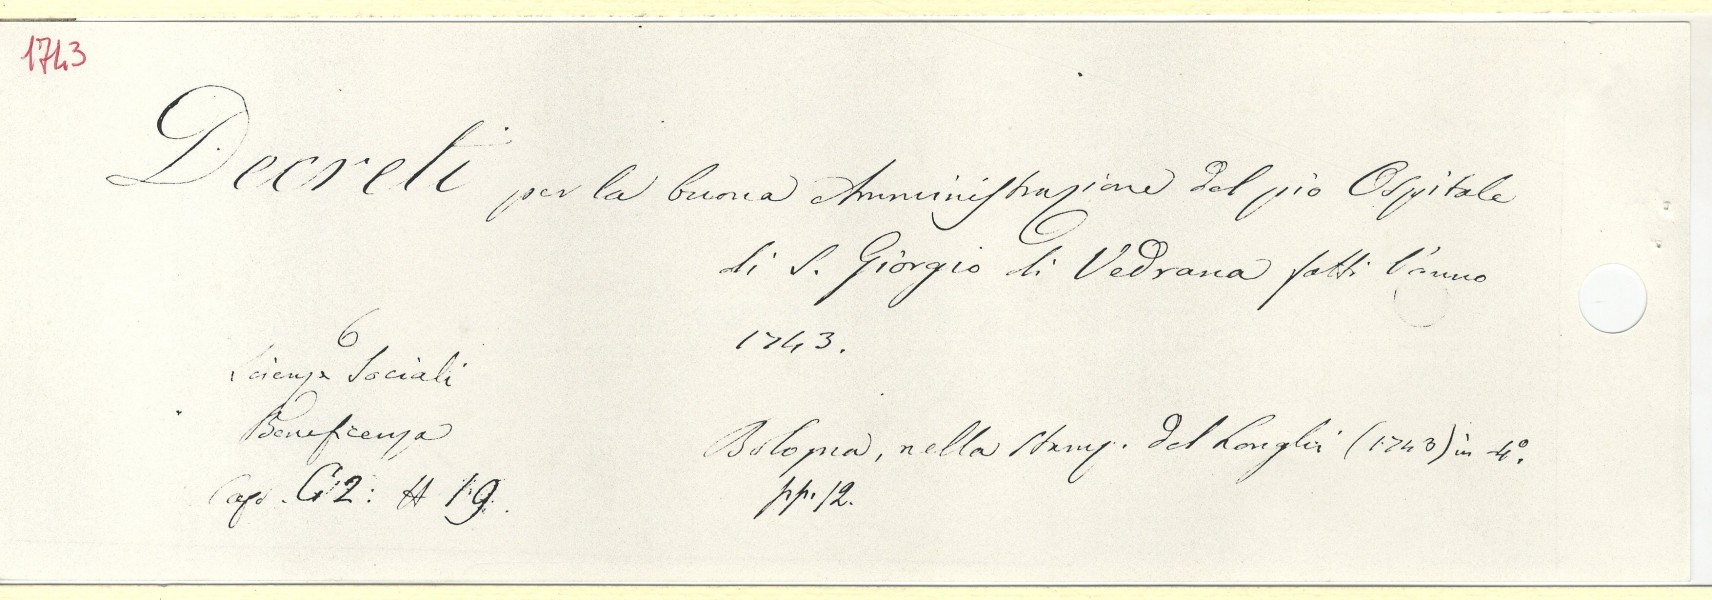 1743
Decreti per la buona Amministrazione del pio Ospitale
di S. Giorgio di Vedrana fatti l'anno
1743.
6
Scienze Sociali
Beneficenza
Caps. G2: # 19.
Bologna, nella Stamp. del Longhi (1743) in 4º.
pp. 12.